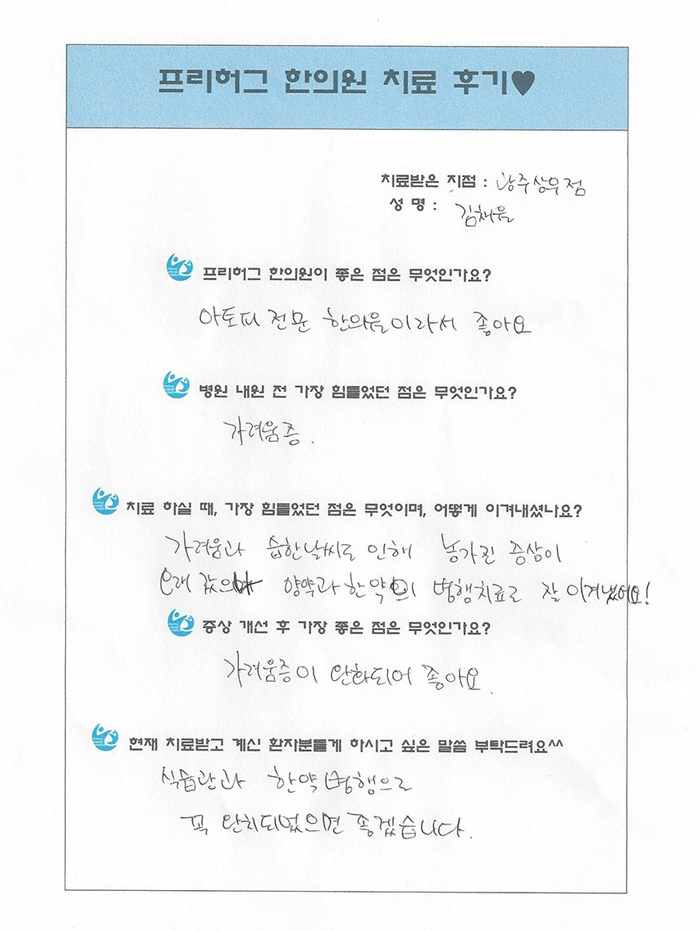 프리허그 한의원 치료 후기♥
치료받은 지점 : 광주상무점
성 명 : 김채음
프리허그 한의원이 좋은 점은 무엇인가요?
아토피 전문 한의원이라서 좋아요
병원 내원 전 가장 힘들었던 점은 무엇인가요?
가려움증.
치료 하실 때, 가장 힘들었던 점은 무엇이며, 어떻게 이겨내셨나요?
가려움과 습한날씨로 인해 농가진 증상이
오래 갔으나 양약과 한약의 병행치료로 잘 이겨냈어요!
증상 개선 후 가장 좋은 점은 무엇인가요?
가려움증이 완화되어 좋아요.
현재 치료받고 계신 환자분들게 하시고 싶은 말씀 부탁드려요^^
식습관과 한약 병행으로
꼭 완치되었으면 좋겠습니다.